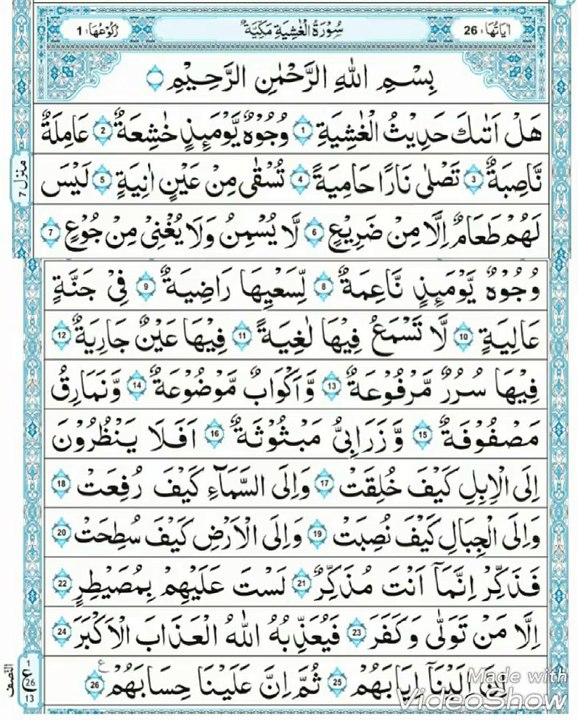 اٰيَاتُهَا: 26 سُوْرَةُ الْغٰشِيَةِ مَكِّيَّةٌ رُكُوْعُهَا: 1
بِسْمِ اللّٰهِ الرَّحْمٰنِ الرَّحِيْمِ
هَلْ اَتٰىكَ حَدِيْثُ الْغٰشِيَةِ 1 وُجُوْهٌ يَّوْمَئِذٍ خٰشِعَةٌ 2 عَامِلَةٌ
نَّاصِبَةٌ 3 تَصْلٰى نَارًا حَامِيَةً 4 تُسْقٰى مِنْ عَيْنٍ اٰنِيَةٍ 5 لَيْسَ
منزل 7
لَهُمْ طَعَامٌ اِلَّا مِنْ ضَرِيْعٍ 6 لَّا يُسْمِنُ وَلَا يُغْنِيْ مِنْ جُوْعٍ 7
وُجُوْهٌ يَّوْمَئِذٍ نَّاعِمَةٌ 8 لِّسَعْيِهَا رَاضِيَةٌ 9 فِيْ جَنَّةٍ
عَالِيَةٍ 10 لَّا تَسْمَعُ فِيْهَا لٰغِيَةً 11 فِيْهَا عَيْنٌ جَارِيَةٌ 12
فِيْهَا سُرُرٌ مَّرْفُوْعَةٌ 13 وَّاَكْوَابٌ مَّوْضُوْعَةٌ 14 وَّنَمَارِقُ
مَصْفُوْفَةٌ 15 وَّزَرَابِيُّ مَبْثُوْثَةٌ 16 اَفَلَا يَنْظُرُوْنَ
اِلَى الْاِبِلِ كَيْفَ خُلِقَتْ 17 وَاِلَى السَّمَآءِ كَيْفَ رُفِعَتْ 18
وَاِلَى الْجِبَالِ كَيْفَ نُصِبَتْ 19 وَاِلَى الْاَرْضِ كَيْفَ سُطِحَتْ 20
فَذَكِّرْ اِنَّمَآ اَنْتَ مُذَكِّرٌ 21 لَسْتَ عَلَيْهِمْ بِمُصَۜيْطِرٍ 22
اِلَّا مَنْ تَوَلّٰى وَكَفَرَ 23 فَيُعَذِّبُهُ اللّٰهُ الْعَذَابَ الْاَكْبَرَ 24
اِنَّ اِلَيْنَآ اِيَابَهُمْ 25 ثُمَّ اِنَّ عَلَيْنَا حِسَابَهُمْ 26
ع
1
26
13
النصف
Made with
VideoShow